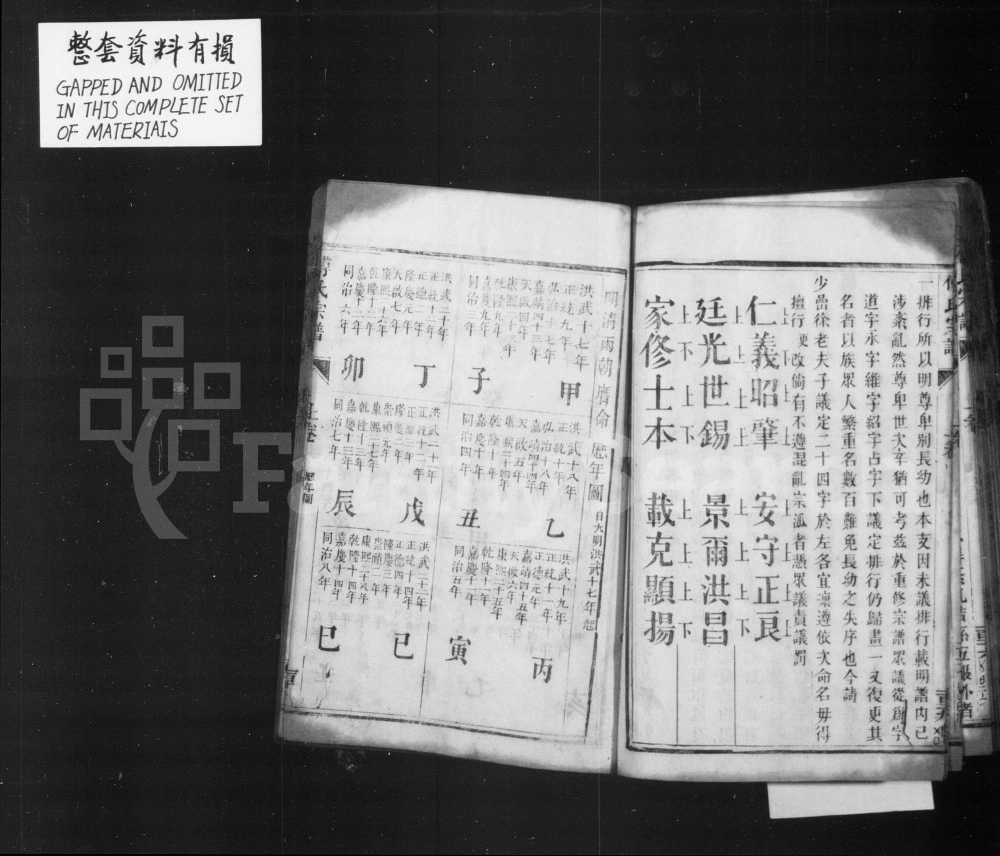 整套資料有損
GAPPED AND OMITTED
IN THIS COMPLETE SET
OF MATERIALS
一排行所以明尊卑别長幼也本支因未議排行載明譜內已
涉紊亂然尊卑世次猶可考茲於重修宗譜眾議從啟字
道字永字維字紹字占字下議定排行仍歸畫一又復更其
名者以族眾人繁重名數百難免長幼之失序也今請
少嵒徐老夫子議定二十四字於左各宜凜遵依次命名毋得
擅行更改倘有不遵混亂宗派者憑眾議責議罰
仁義昭肇 安守正良
上 上 上 上
廷光世錫 景爾洪昌
上 下 上 下 上 上 上 下
家修士本 載克顯揚
明清兩朝曆命歷年圖 自大明洪武十七年起
甲 子
洪武十七年
正統九年
弘治十七年
嘉靖四十三年
天啟四年
康熙二十三年
乾隆九年
嘉慶九年
同治三年
乙 丑
洪武十八年
正統十年
弘治十八年
嘉靖四十四年
天啟五年
康熙二十四年
乾隆十年
嘉慶十年
同治四年
丙 寅
洪武十九年
正統十一年
正德元年
嘉靖四十五年
天啟六年
康熙二十五年
乾隆十一年
嘉慶十一年
同治五年
丁 卯
洪武二十年
正統十二年
正德二年
隆慶元年
天啟七年
康熙二十六年
乾隆十二年
嘉慶十二年
同治六年
戊 辰
洪武二十一年
正統十三年
隆慶二年
崇禎元年
康熙二十七年
乾隆十三年
嘉慶十三年
同治七年
己 巳
洪武二十二年
正統十四年
正德四年
隆慶三年
崇禎二年
康熙二十八年
乾隆十四年
嘉慶十四年
同治八年
氏宗譜
上卷
歷年圖
FamilySearch